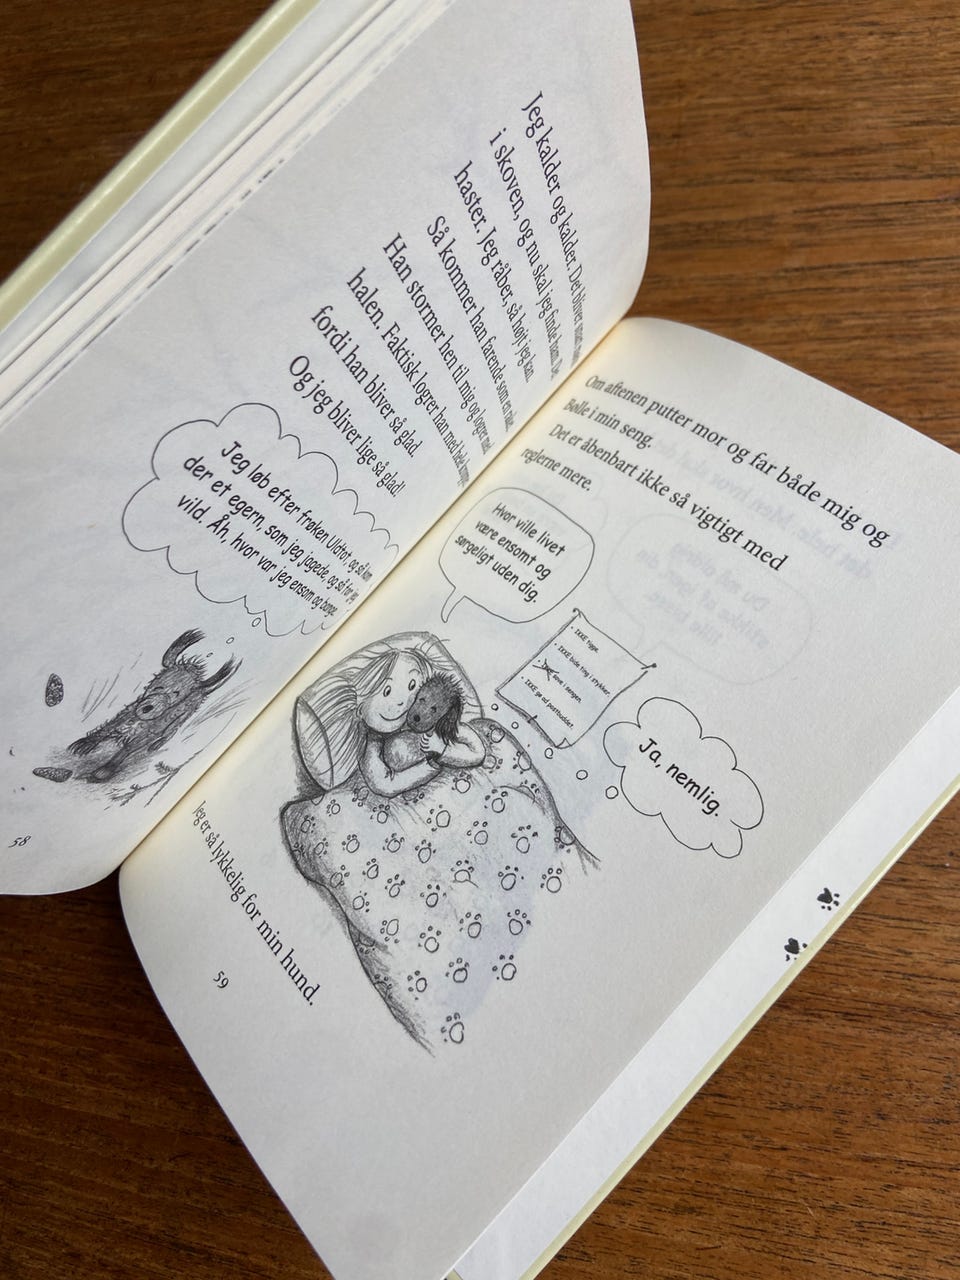 Jeg kalder og kalder. Det bliver snart
i skoven, og nu skal jeg finde ham. Det
haster. Jeg råber, så højt jeg kan.
Så kommer han farende som en
Han stormer hen til mig og logrer med
halen. Faktisk logrer han med hele kroppen,
fordi han bliver så glad.
Og jeg bliver lige så glad!
Jeg løb efter frøken Uldtot, og så kom
der et egern, som jeg jagede, og så for jeg
vild. Åh, hvor var jeg ensom og bange.
58
Om aftenen putter mor og far både mig og
Bølle i min seng.
Det er åbenbart ikke så vigtigt med
reglerne mere.
Hvor ville livet
være ensomt og
sørgeligt uden dig.
• IKKE tigge.
• IKKE bide ting i stykker.
• IKKE sove i sengen.
• IKKE gø ad postbuddet!
Ja, nemlig.
Jeg er så lykkelig for min hund.
59